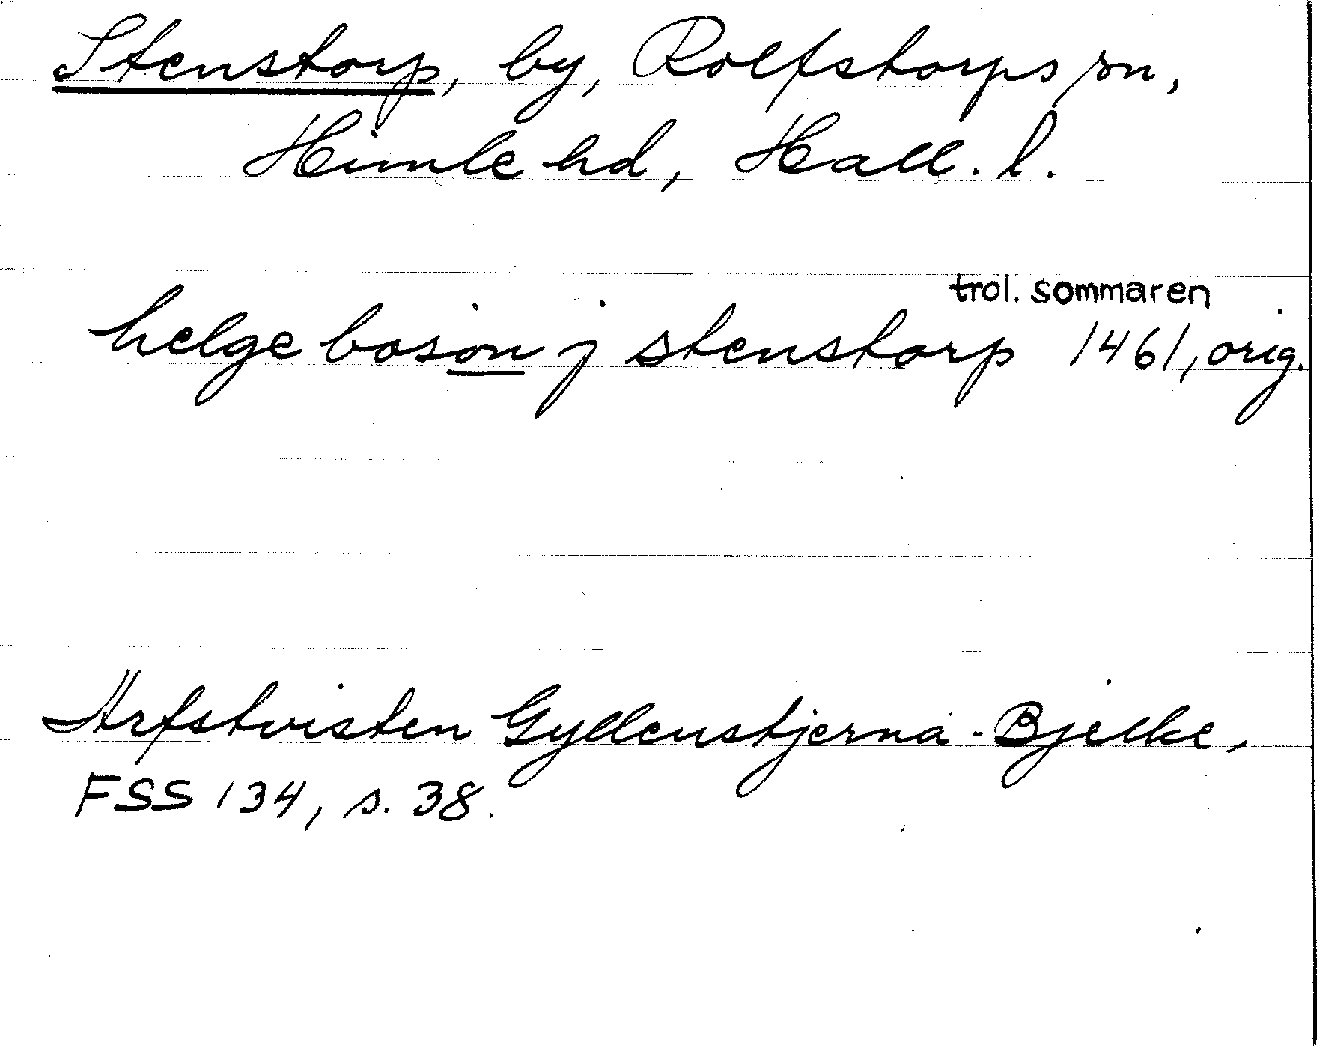 Stenstorp, by, Rolfstorps sn,
Himle hd, Hall. l.
trol. sommaren
helge boson j stenstorp 1461, orig.
Arfstvisten Gyllenstjerna-Bjelke,
FSS 134, s. 38.